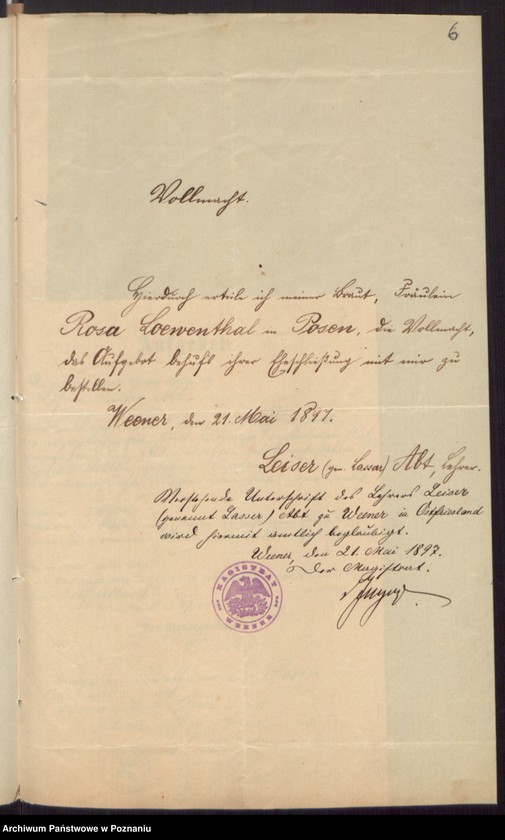 6
Vollmacht.
Hierdurch erteile ich meiner Braut, Fräulein
Rosa Loewenthal in Posen, die Vollmacht,
das Aufgebot behufs ihrer Eheschließung mit mir zu
bestellen.
Weener, den 21. Mai 1897.
Leiser (gen. Lassar) Abt, Lehrer.
Vorstehende Unterschrift des Lehrers Leiser
(genannt Lasser) Abt zu Weener in Ostfriesland
wird hiermit amtlich beglaubigt.
Weener, den 21. Mai 1897.
Der Magistrat.
MAGISTRAT
WEENER
Archiwum Państwowe w Poznaniu